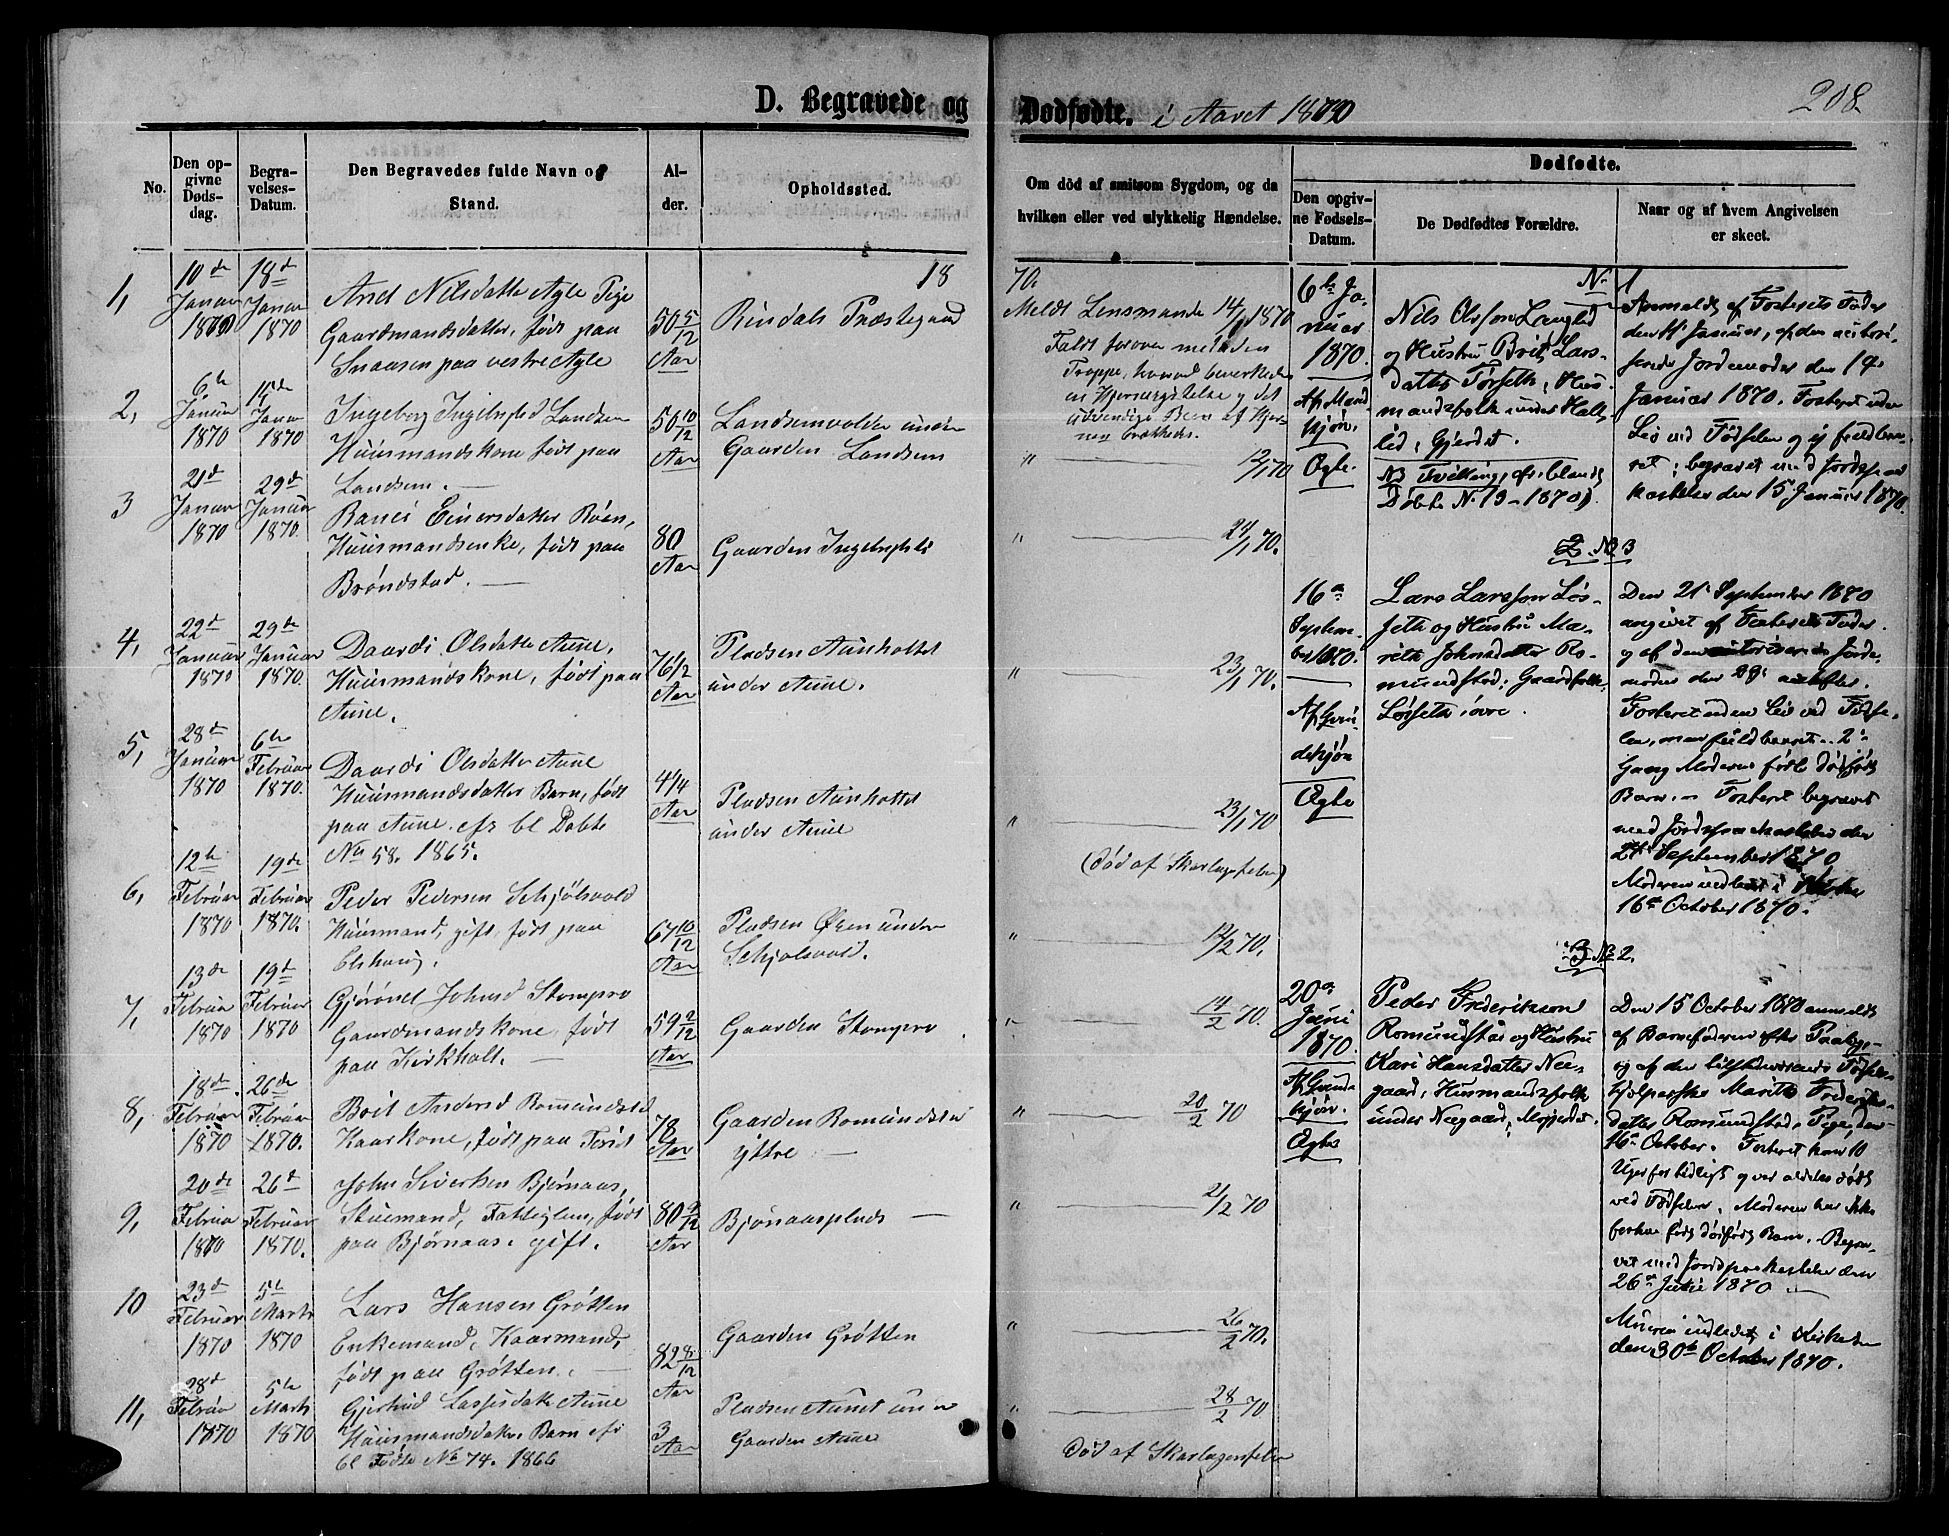 D. Begravede og
Dødfødte. i Aaret 1870
208.
No.
Den opgivne Dødsdag.
Begravelses-Datum.
Den Begravedes fulde Navn og Stand.
Alder.
Opholdssted.
Om død af smitsom Sygdom, og da hvilken eller ved ulykkelig Hændelse.
Dødfødte.
Den opgivne Fødsels-Datum.
De Dødfødtes Forældre.
Naar og af hvem Angivelsen er skeet.
18
70.
1,
10de Januar 1870
18d Januar 1870
Nilsdatter Agle Pige
Gaardmandsdatter, født paa
Snaasen paa vestre Agle
50 5/12 Aar
Rindals Præstegaard
Meldt Lensmanden 14/1 1870
Faldt forover med den
Trappe, hvorved bevirkedes
en Hjernerystelse og det
udvendige Been af Hjer-
nen brækkedes.
2,
6te Januar 1870
Januar 1870
Ingeborg Landsem
Huusmandskone født paa
Landsem.
50 10/12 Aar
Landsemvolden under
Gaarden Landsem
" 12/1 70
3
21de Januar 1870
29de Januar 1870.
Einersdatter Bøen,
Huusmandsenke, født paa
Brøndstad.
80 Aar
Gaarden
" 24/1 70.
4,
22de Januar 1870
29de Januar 1870.
Daardi Olsdatter Aune,
Huusmandskone, født paa
Aune.
76 1/2 Aar
Pladsen Aunholtet
under Aune.
" 23/1 70.
5,
28de Januar 1870
6te Februar 1870.
Daardi Olsdatter Aune
Huusmandsdatter Barn, født
paa Aune. cfr bl Døbte
No 58. 1865.
4 1/4 Aar
Pladsen Aunholtet
under Aune
" 23/1 70
(Død af Skarlagsfeber)
6,
12te Februar 1870
19de Februar 1870.
Peder Pedersen Schjølsvold
Huusmand, gift, født paa
Elshaug.
67 10/12 Aar
Pladsen Øren under
Schjølsvold.
" 12/2 70.
7,
13de Februar 1870
19de Februar 1870
Johnsd Stompro
Gaardmandskone født
paa Kirkholt.
59 2/12 Aar
Gaarden Stompro
" 14/2 70.
8,
18de Februar 1870
26de Februar 1870.
Brit Andersd Romundstd
Kaarkone, født paa
78 Aar
Gaarden Romundstad
yttre
" 20/2 70
9,
20de Februar 1870
26de Februar 1870.
John Siversen Bjørnaas,
Stuemand, Fattiglem, født
paa Bjørnaas. gift.
80 9/12 Aar
Bjørnaasplads
" 21/2 70
10
23de Februar 1870
5te Marts 1870
Lars Hansen Grøtten
Enkemand, Kaarmand,
født paa Grøtten.
82 8/12 Aar
Gaarden Grøtten
" 26/2 70.
11,
28de Februar 1870
5te Marts 1870
Gjertrud Larsdatter Aune
Huusmandsdatter, Barn cfr
bl Fødte No 74. 1866
3 Aar
Pladsen Aunet under
Gaarden Aune
" 28/2 70
Død af Skarlagensfeber
No 1
6te Januar 1870.
Af Mandkjøn.
Ægte.
Nils Olsson Langlid
og Hustru Brit Lars-
datter Tørseth, Hus-
mandsfolk under Halt-
lid, Gjerdet.
NB Tvilling, cfr. blandt
Døbte No 13 - 1870).
Anmeldt af Fosterets Fader
den Januar, af den autori-
serede Jordemoder den 14
Januar 1870. Fosteret uden
Liv ved Fødselen og ej fuldbaa-
ret; begravet med Jordspaa-
kastelse den 15 Januar 1870.
2 NB 3
16de September 1870.
Af Qvindekjøn
Ægte
Lars Larsson Løs-
seth og Hustru Ma-
rit Johnsdatter Ro-
mundstad; Gaardfolk,
Løsseth øvre.
Den 21 September 1870
angivet af Fosterets Fader
og af den autoriserede Jorde-
moder den 29.
Fosteret uden Liv ved Fødse-
len, men fuldbaaret. 2den
Gang Moderen fødte dødfødt
Barn. Fosteret begravet
med Jordspaakastelse den
24 September 1870
Moderen indledet i Kirken
16de October 1870.
3 NB 2.
20de Juni 1870.
Af Qvindekjøn.
Ægte
Peder Frederiksson
Romundstad og Hustru
Kari Hansdatter Nee-
gaard, Husmandsfolk
under Neegaard,
Den 15 October 1870 anmeldt
af Barnefaderen
og af den Fødsels-
hjelperske Marit Frederiks-
datter Romundstad, Pige, den
16de October. Fosteret kom 10
Uger for tidligt og var aldeles dødt
ved Fødselen. Moderen har ikke
forhen født dødfødt Barn. Begra-
vet med Jordpaakastelse den
26de 1870
indledet i Kirken
den 30te October 1870.